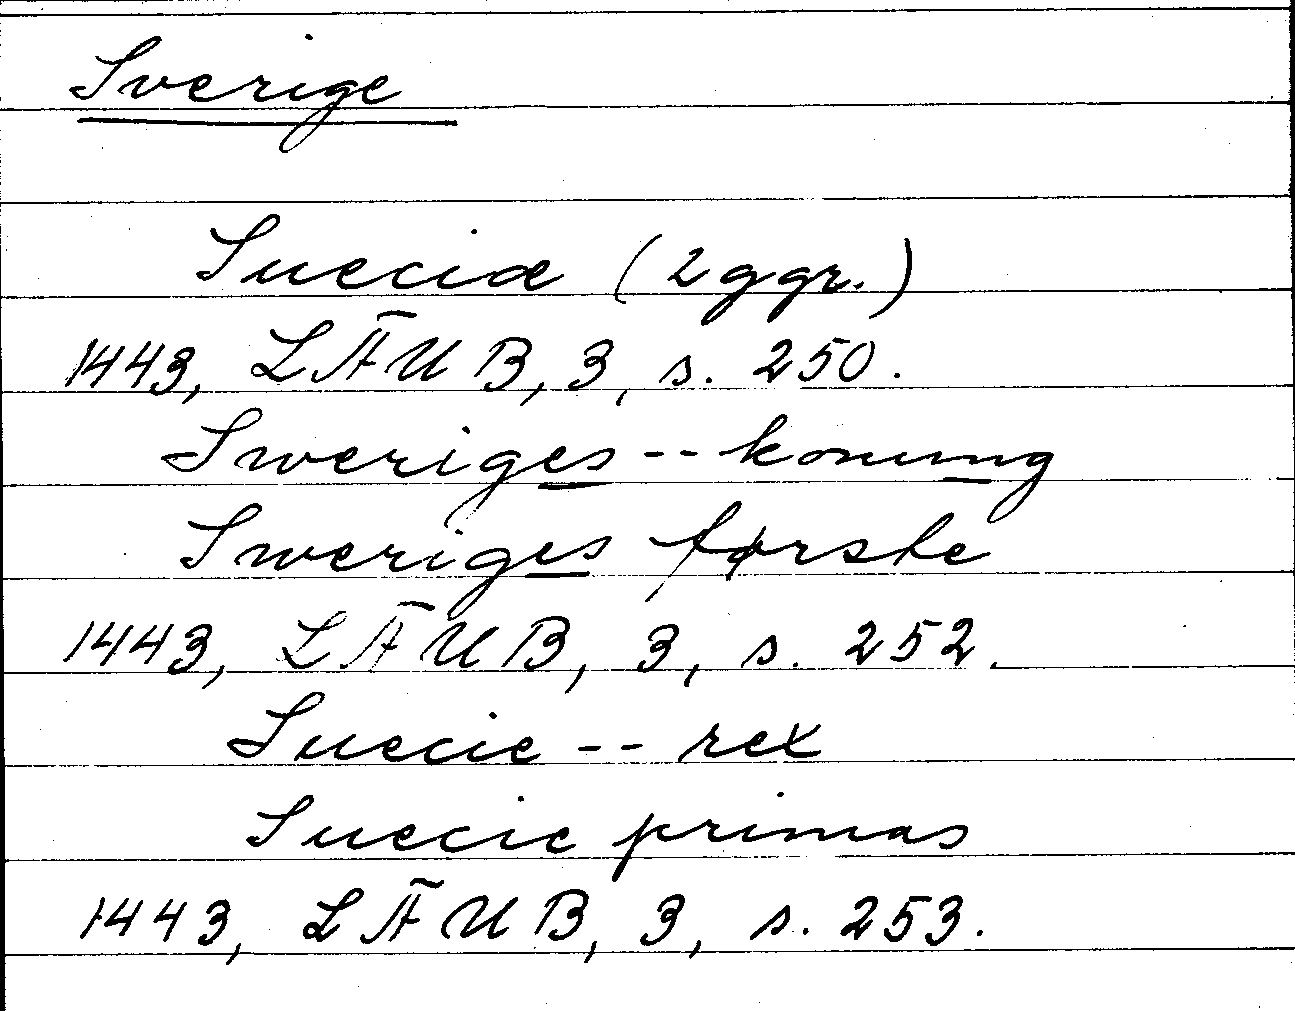 Sverige
Sueciæ (2 ggr.)
1443, LÄUB, 3, s. 250.
Sweriges -- konung
Sweriges første
1443, LÄUB, 3, s. 252.
Suecie -- rex
Suecie primas
1443, LÄUB, 3, s. 253.